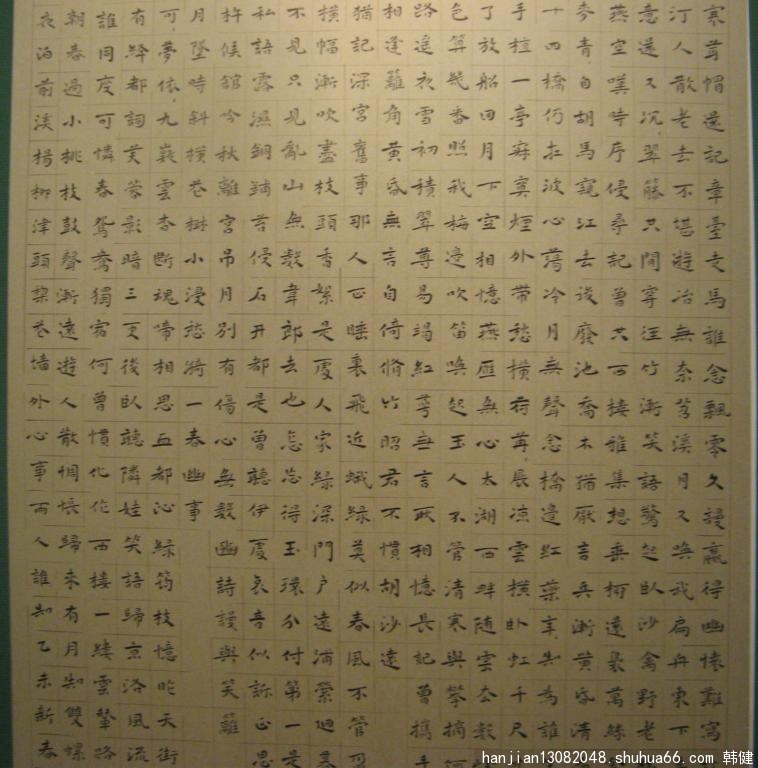 寒茸帽還記章臺走馬誰念飄零久謾贏得幽懷難寫
汀人散老去不堪遊冶無奈苕溪月又喚我扁舟東下
意還又沉翠藤共閒穿徑竹漸笑語驚起臥沙禽野老
燕空嘆時序侵尋記曾共西樓雅集想垂柳還裊萬絲
麥青自胡馬窺江去後廢池喬木猶厭言兵漸黃昏清
十四橋仍在波心蕩冷月無聲念橋邊紅藥年知為誰
手植一亭寂寞煙外帶愁橫荷苒展涼雲橫臥虹千尺
了放船回月下空相憶燕雁無心太湖西畔隨雲去數
色算幾番照我梅邊吹笛喚起玉人不管清寒與攀摘何
路遙夜雪初積翠尊易竭紅萼無言耿相憶長記曾攜手
相逢籬角黃昏無言自倚脩竹昭君不慣胡沙遠
猶記深宮舊事那人正睡裏飛近蛾綠莫似春風不管
橫幅漸吹盡枝頭香絮是處人家綠深門戶遠浦縈迴暮
不見只見亂山無數韋郎去也怎忘得玉環分付第一是
私語露濕銅鋪苔侵石井都是曾聽伊處哀音似訴正思
杵候館吟秋離宮吊月別有傷心無數豳詩謾與笑籬
月墜時斜橫巷樹小浸愁漪一春幽事
可夢依九嶷雲杳斷魂啼相思血都沁綠筠枝憶昨天街
有絳都詞芙蓉影暗三更後臥聽隣娃笑語歸京洛風流
誰同度可憐春鴛鴦獨宿何曾慣化作西樓一縷雲輦路
朝春過小桃枝鼓聲漸遠遊人散惆悵歸來有月知雙螺
夜泊前溪楊柳津頭梨花墻外心事兩人誰知乙未新春
hanjian13082048.shuhua66.com 韩健